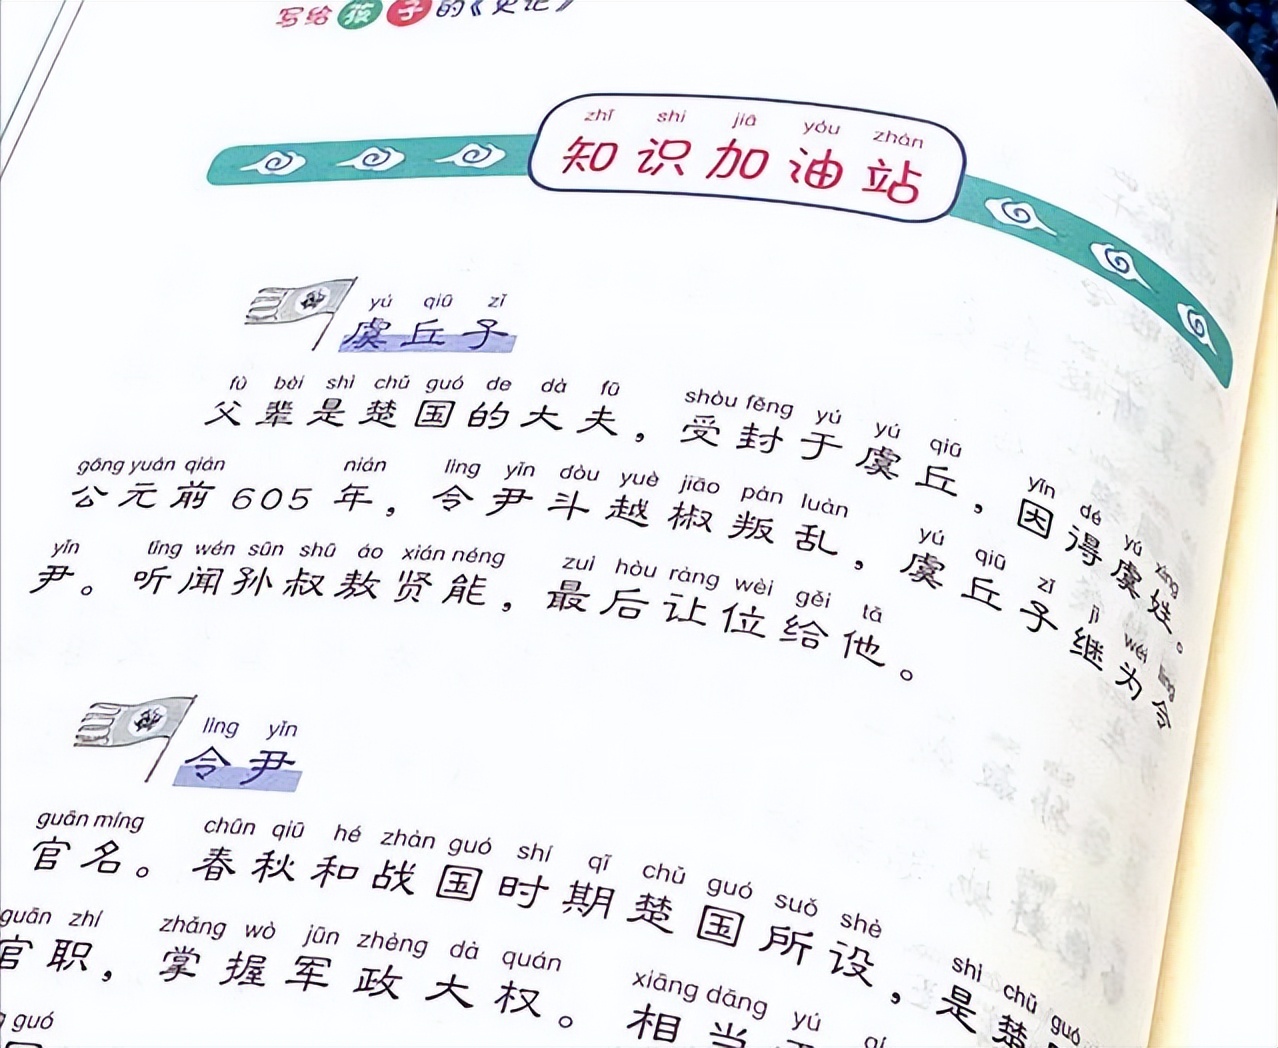 写给孩子的《史记》
zhī shi jiā yóu zhàn
知识加油站
yú qiū zǐ
虞丘子
fù bèi shì chǔ guó de dà fū shòu fēng yú yú qiū yīn dé yú xìng
父辈是楚国的大夫，受封于虞丘，因得虞姓。
gōng yuán qián nián lìng yǐn dòu yuè jiāo pàn luàn yú qiū zǐ jì wéi lìng
公元前605年，令尹斗越椒叛乱，虞丘子继为令
yǐn tīng wén sūn shū áo xián néng zuì hòu ràng wèi gěi tā
尹。听闻孙叔敖贤能，最后让位给他。
lìng yǐn
令尹
guān míng chūn qiū hé zhàn guó shí qī chǔ guó suǒ shè shì chǔ guó
官名。春秋和战国时期楚国所设，是楚
guān zhí zhǎng wò jūn zhèng dà quán xiāng dāng yú
官职，掌握军政大权。相当
guó